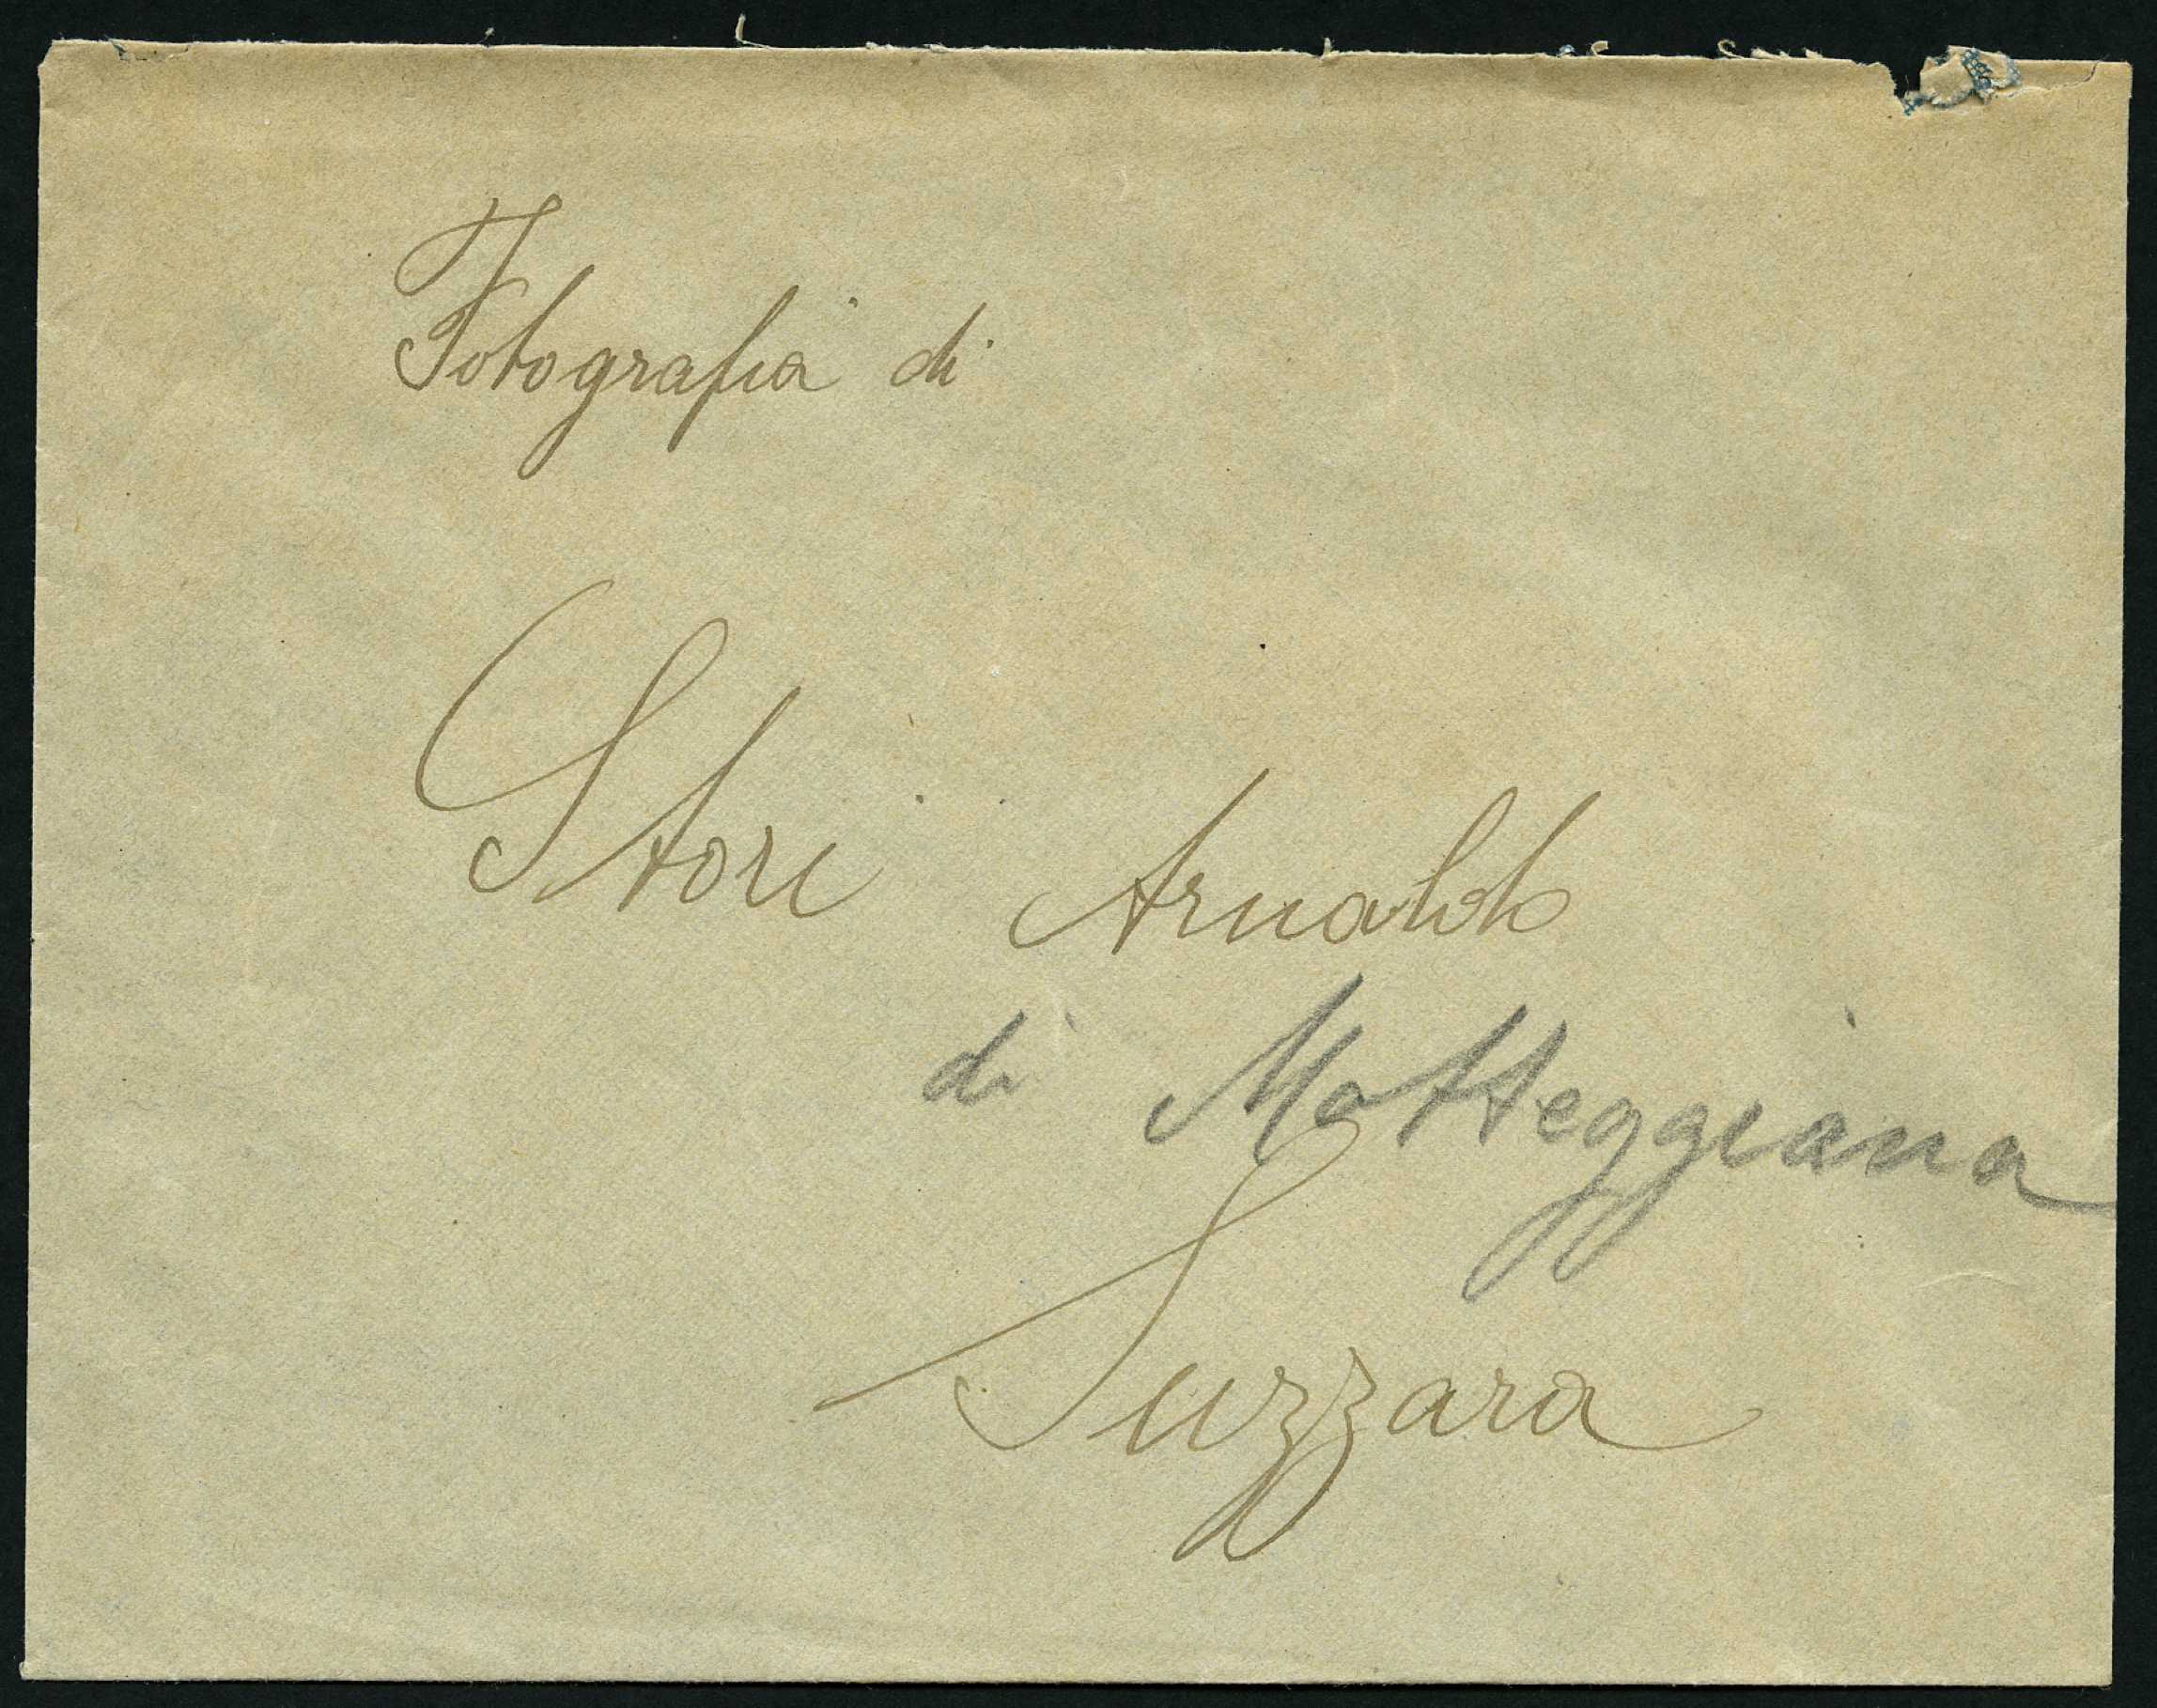 Fotografia di
Stori Arnaldo
di Motteggiana
Suzzara